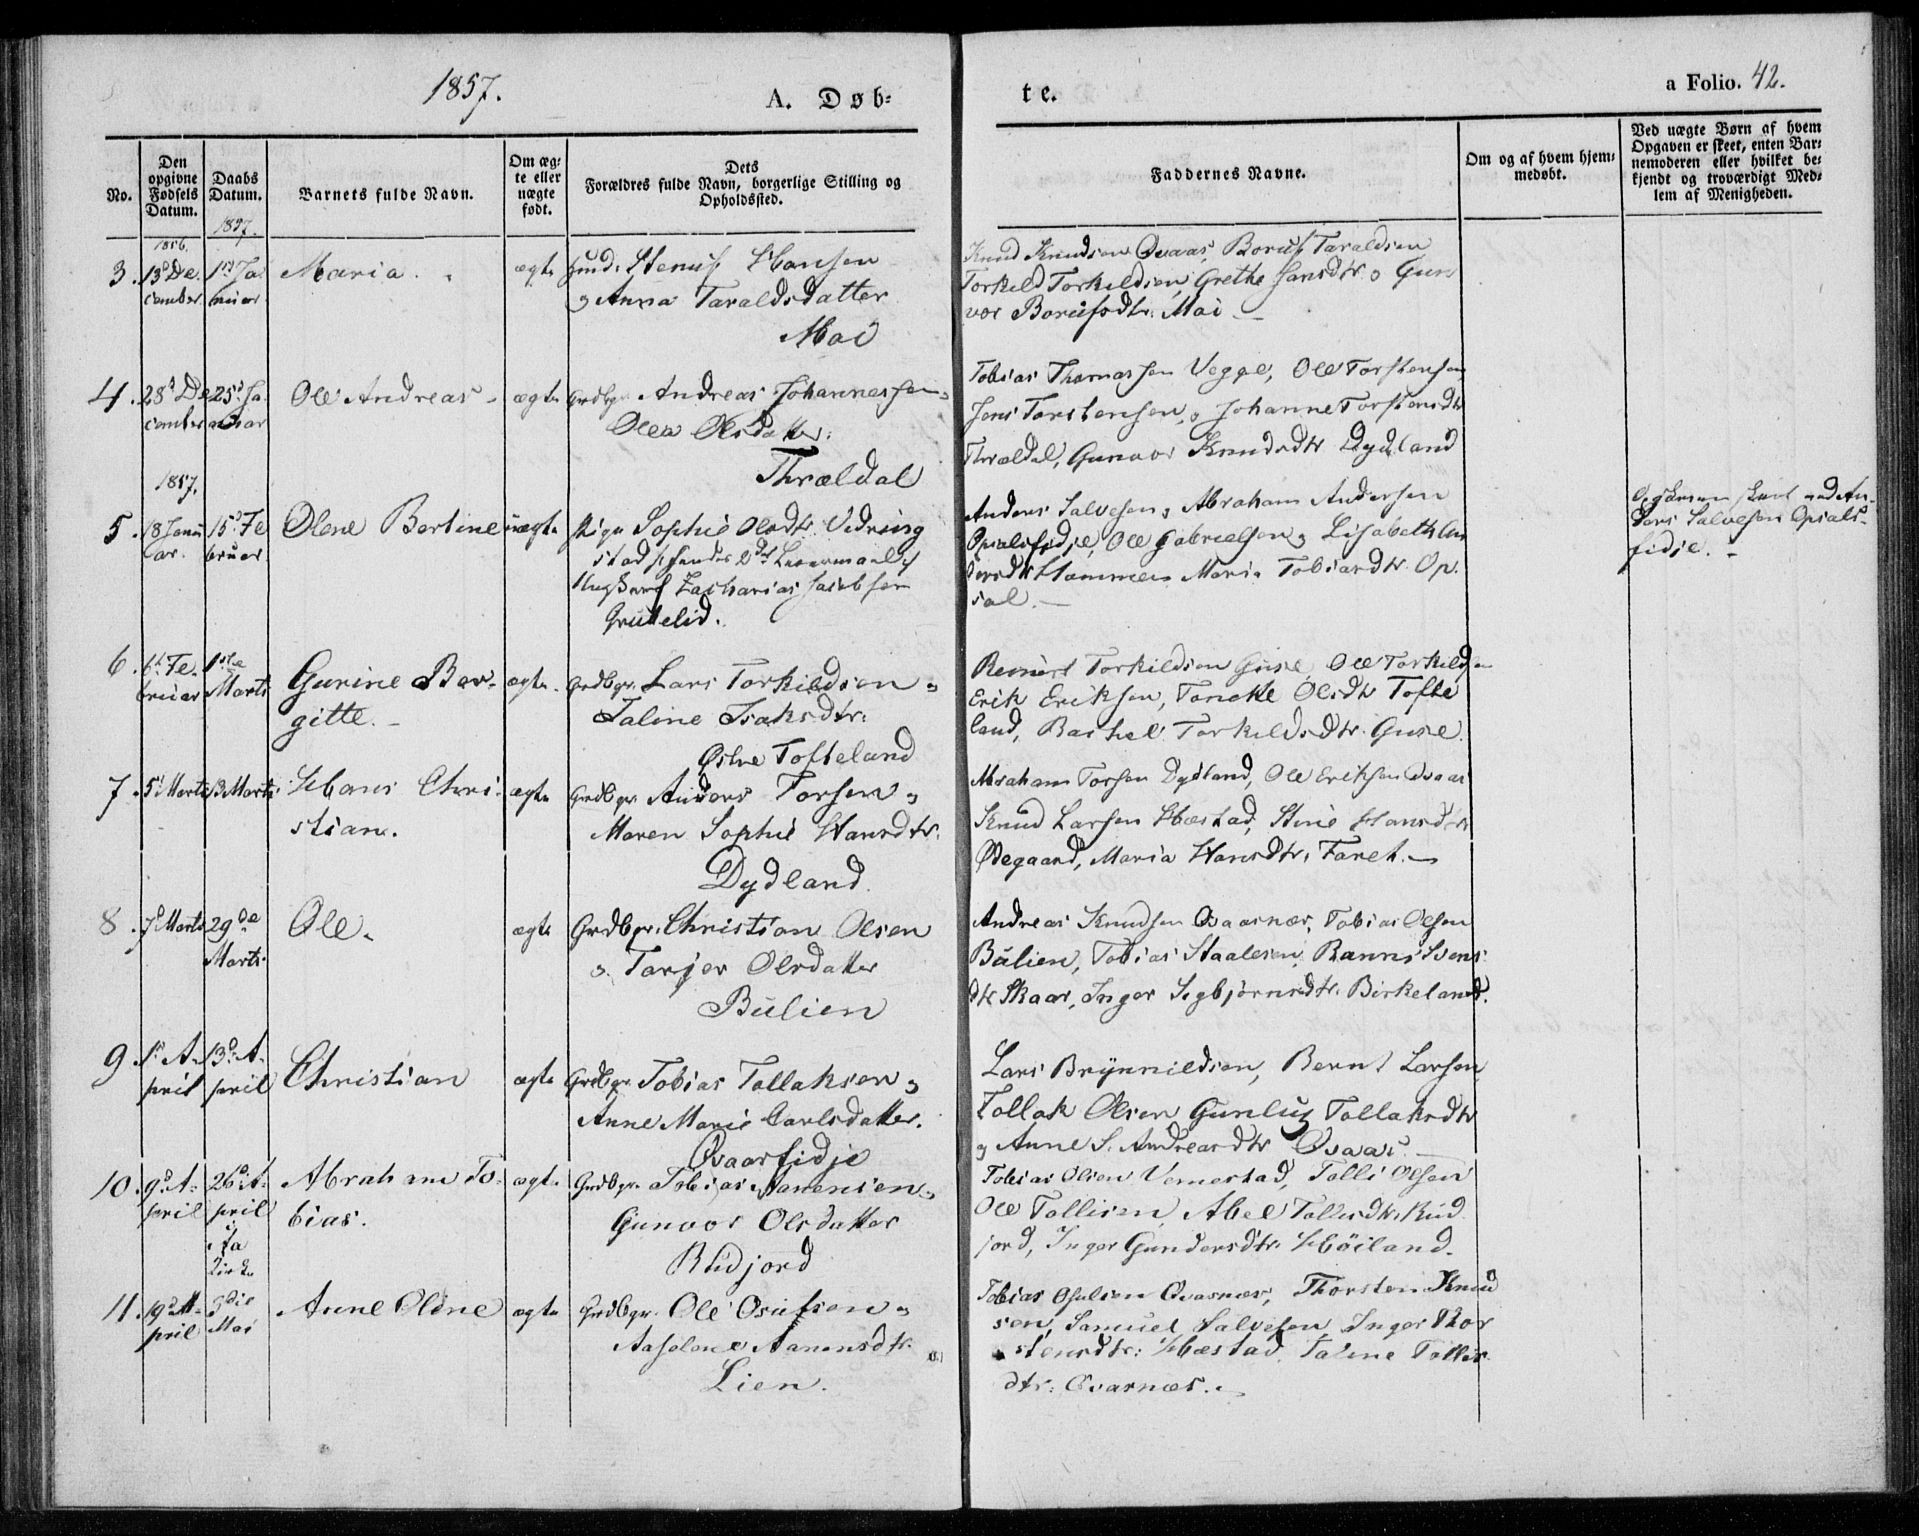 1857.
A. Døb-
te.
a Folio. 42.
No.
Den opgivne Fødsels Datum.
Daabs Datum.
Barnets fulde Navn.
Om ægte eller uægte født.
Dets Forældres fulde Navn, borgerlige Stilling og Opholdssted.
Faddernes Navne.
Om og af hvem hjemmedøbt.
Ved uægte Børn af hvem Opgaven er skeet, enten Barnemoderen eller hvilket bekjendt og troværdigt Medlem af Menigheden.
1856. 1857.
3. 13d De- 1ste Ja- Maria. ægte Hansen
cember nuar og Anna Taraldsdatter
Mai
Knud Knudsen Qvaas, Boruf Taraldsen
Torkild Torkildsen, Grethe Hansdtr. og Gun
vor Borufsdtr. Mai
4. 28d De 25d Ja- Ole Andreas ægte Grdbgr. Andreas Johannessen
cember nuar Olea Olsdatter.
Thrældal
Tobias Thomassen Vegge, Ole Torstensen
Jens Torstensen, og Johanne Torstensdtr
Thrældal, Gunvor Knudsdtr Dydland
1857.
5. 18 Janu 15d Fe Olene Bertine uægte Pige Sophie Olsdtr. Vedring
ar. bruar stad 2det Leiermaal
Zacharias Jacobsen
Grutelid.
Anders Salvesen og Abraham Andersen
Opsalsfidje, Ole Gabrielsen og Lisabeth An
dersdtr Hammer Maria Tobiasdtr. Op-
sal.
Opgaven skeet ved An-
ders Salvesen Opsals-
fidje.
6. 6te Fe- 1ste Gurine Ber- ægte Grdbgr. Lars Torkildsen og
bruar Marts gitte. Taline Isaksdtr.
Østre Tofteland
Reinert Torkildsen Guse, Ole Torkildsen
Erik Eriksen, Toncke Olsdtr Tofte
land, Rachel Torkildsdtr. Guse.
7. 5t Marts 13 Marts Hans Chri- ægte Grdbgr. Anders Torsen og
stian. Maren Sophie Hansdtr.
Dydland.
Abraham Torsen Dydland, Ole Eriksen Qvaas
Knud Larsen Hæstad, Stine Hansdtr
Ødegaard, Maria Hansdtr. Faret.
8. 7d Marts 29de Ole. ægte Grdbgr. Christian Olsen
Marts. og Tarjer Olsdatter
Bulien
Andreas Knudsen Qvaasnæs, Tobias Olsen
Bulien, Tobias Staalesen, Ranni Svens
dtr Skaar, Inger Sigbjørnsdtr. Birkeland.
9. 1d A- 13d A- Christian ægte Grdbgr. Tobias Tollaksen og
pril pril Anne Marie Carlsdatter.
Qvaasfidje
Lars Brynnildsen, Bernt Larsen
Tollak Olsen Gunlug Tollaksdtr
og Anne S. Andreasdtr Qvaas.
10. 9d A- 26d A- Abraham To- ægte Grdbgr. Tobias Aanensen og
pril pril bias. Gunvor Olsdatter
Rudjord
Tobias Olsen Vemestad, Tolli Olsen
Ole Tollisen, Abel Tollisdtr. Rud
jord, Inger Gundersdtr. Høiland.
11. 19d A- 3die Anne Oline ægte Grdbgr. Ole Osulsen og
pril Mai Aasolene Aanensdtr.
Lien.
Tobias Osulsen Qvasnæs, Thorsten Knud
sen, Samuel Salvesen, Inger Thor
stensdtr. Hæstad, Taline Tollis
dtr. Qvasnæs.